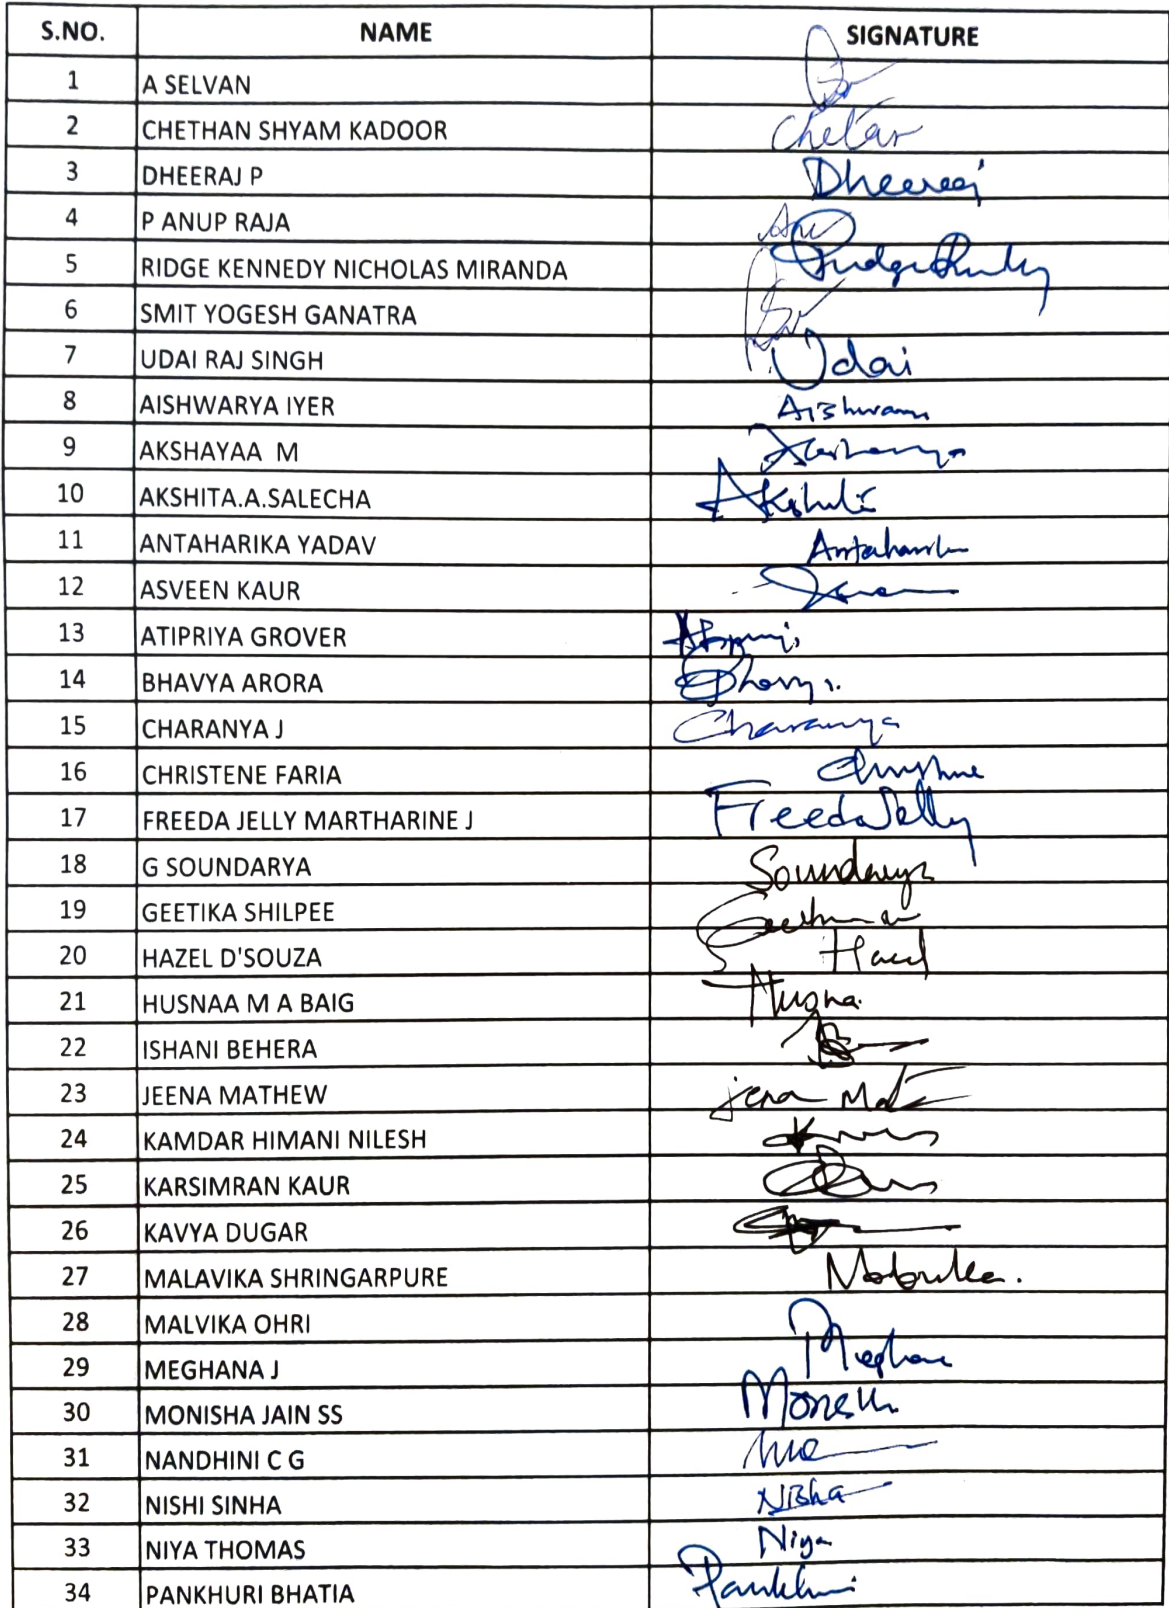 S.NO. NAME SIGNATURE
1 A SELVAN
2 CHETHAN SHYAM KADOOR Chetan
3 DHEERAJ P Dheeraj
4 P ANUP RAJA
5 RIDGE KENNEDY NICHOLAS MIRANDA
6 SMIT YOGESH GANATRA
7 UDAI RAJ SINGH Udai
8 AISHWARYA IYER
9 AKSHAYAA M
10 AKSHITA.A.SALECHA
11 ANTAHARIKA YADAV
12 ASVEEN KAUR
13 ATIPRIYA GROVER
14 BHAVYA ARORA
15 CHARANYA J Charanya
16 CHRISTENE FARIA
17 FREEDA JELLY MARTHARINE J Freeda Jelly
18 G SOUNDARYA Soundarya
19 GEETIKA SHILPEE
20 HAZEL D'SOUZA
21 HUSNAA M A BAIG Husna
22 ISHANI BEHERA
23 JEENA MATHEW
24 KAMDAR HIMANI NILESH
25 KARSIMRAN KAUR
26 KAVYA DUGAR
27 MALAVIKA SHRINGARPURE
28 MALVIKA OHRI
29 MEGHANA J
30 MONISHA JAIN SS
31 NANDHINI C G
32 NISHI SINHA
33 NIYA THOMAS Niya
34 PANKHURI BHATIA